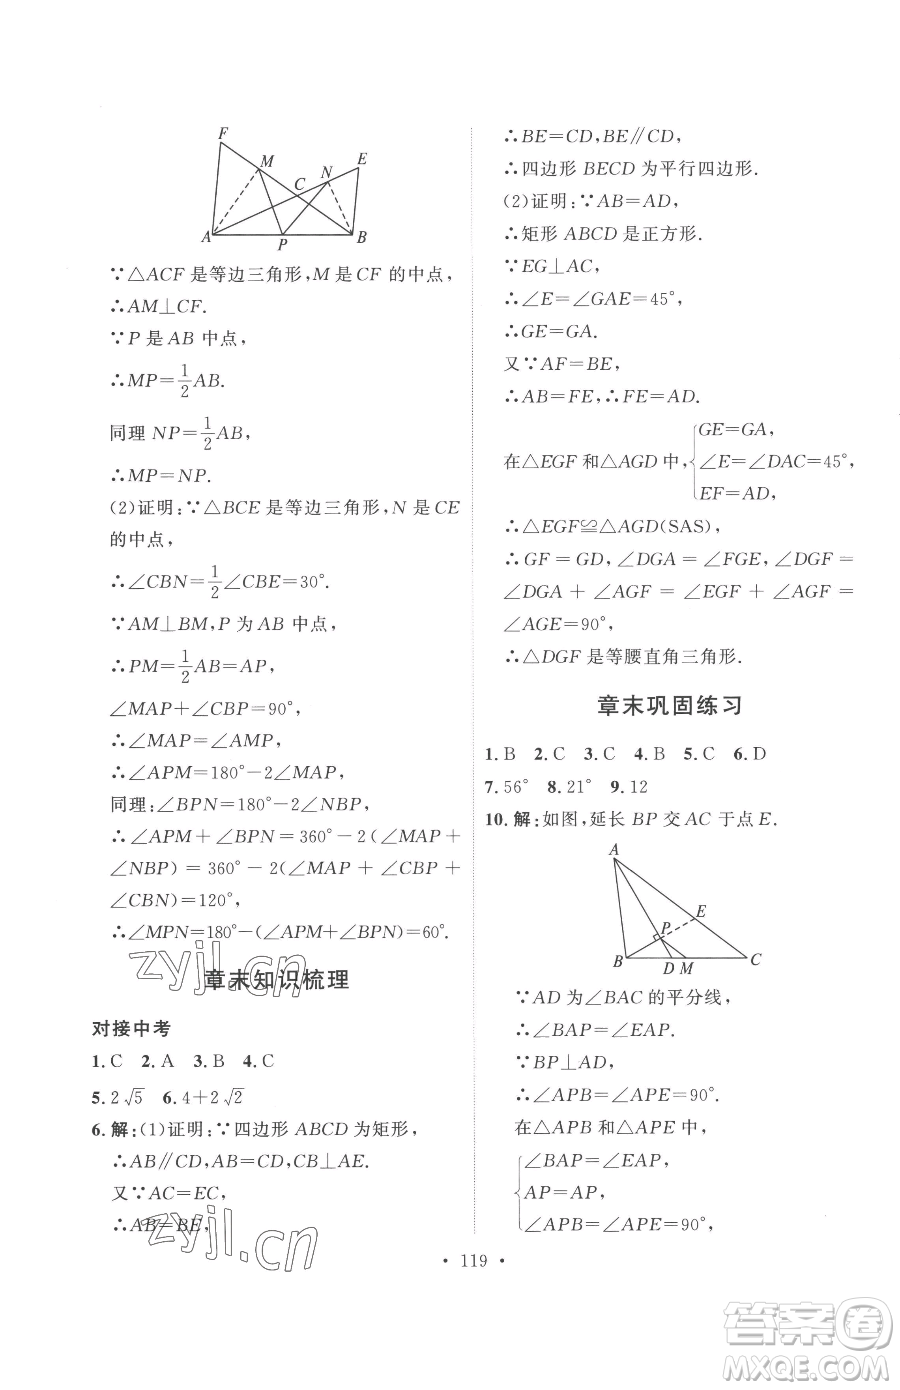 F
M
N
E
C
A
P
B
∵△ACF 是等边三角形,M 是 CF 的中点,
∴AM⊥CF.
∵P 是 AB 中点,
∴MP=1/2AB.
同理 NP=1/2AB,
∴MP=NP.
(2)证明:∵△BCE 是等边三角形,N 是 CE
的中点,
∴∠CBN=1/2∠CBE=30°.
∵AM⊥BM,P 为 AB 中点,
∴PM=1/2AB=AP,
∠MAP+∠CBP=90°.
∴∠MAP=∠AMP,
∴∠APM=180°-2∠MAP,
同理:∠BPN=180°-2∠NBP,
∴∠APM+∠BPN=360°-2(∠MAP+
∠NBP)=360°-2(∠MAP+∠CBP+
∠CBN)=120°,
∴∠MPN=180°-(∠APM+∠BPN)=60°.
章末知识梳理
对接中考
1.C 2.A 3.B 4.C
5.2√5 6.4+2√2
6.解:(1)证明:∵四边形 ABCD 为矩形,
∴AB∥CD,AB=CD,CB⊥AE.
又∵AC=EC,
∴AB=BE,
∴BE=CD,BE∥CD,
∴四边形 BECD 为平行四边形.
(2)证明:∵AB=AD,
∴矩形 ABCD 是正方形.
∵EG⊥AC,
∴∠E=∠GAE=45°,
∴GE=GA.
又∵AF=BE,
∴AB=FE,∴FE=AD.
在△EGF 和△AGD 中,{GE=GA,
∠E=∠DAC=45°,
EF=AD,
∴△EGF≌△AGD(SAS),
∴GF=GD,∠DGA=∠FGE,∠DGF=
∠DGA+∠AGF=∠EGF+∠AGF=
∠AGE=90°,
∴△DGF 是等腰直角三角形.
章末巩固练习
1.B 2.C 3.C 4.B 5.C 6.D
7.56° 8.21° 9.12
10.解:如图,延长 BP 交 AC 于点 E.
A
E
P
B
D M
C
∵AD 为∠BAC 的平分线,
∴∠BAP=∠EAP.
∵BP⊥AD,
∴∠APB=∠APE=90°.
在△APB 和△APE 中,
{∠BAP=∠EAP,
AP=AP,
∠APB=∠APE=90°,
• 119 •
zyjl.cn
zyjl.cn
答案圈
MXQE.COM